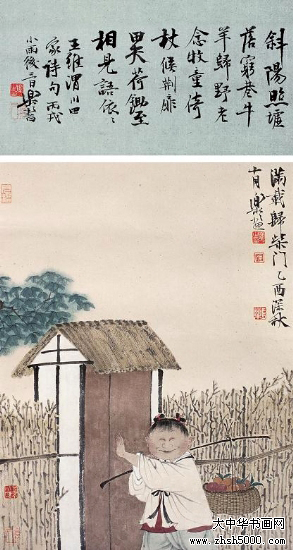 斜陽照墟
落窮巷牛
羊歸野老
念牧童倚
杖候荆扉
田夫荷鋤至
相見語依々
王維渭川田
家詩句丙戌
小雨後
滿載歸柴門乙酉深秋
大中华书画网
www.zhsh5000.com